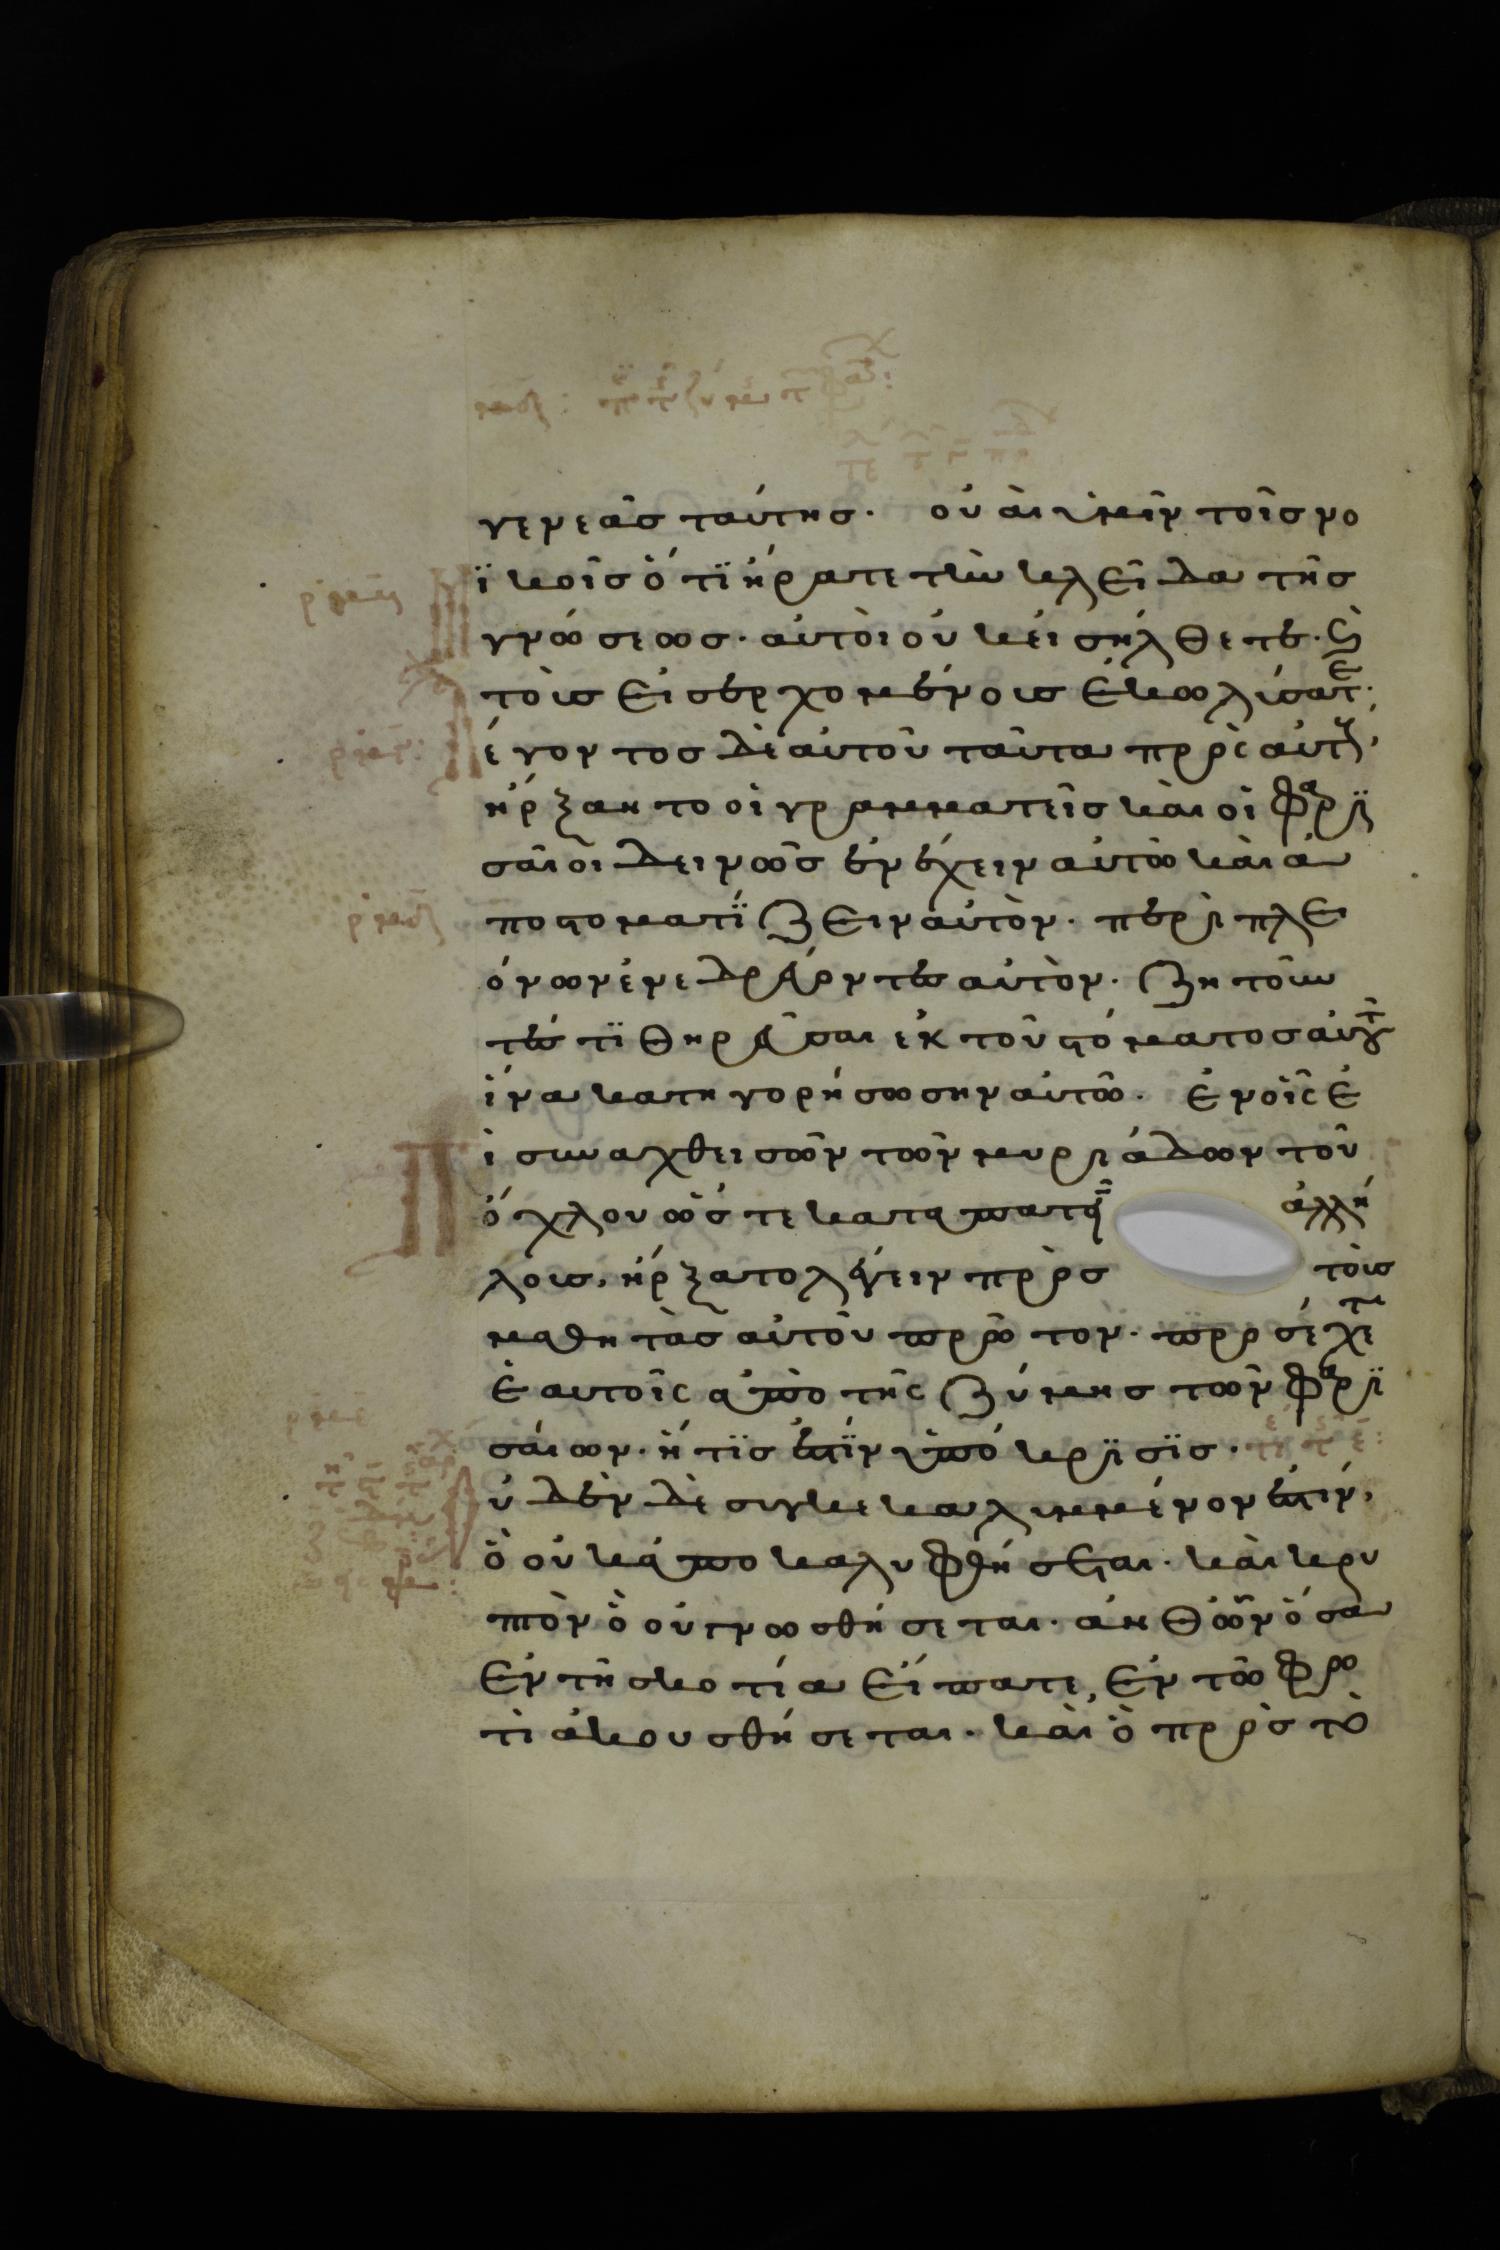 γενεᾶσ ταύτησ. οὐαὶ ὑμῖν τοῖσ νο
ϊκοῖσ ὅτϊ ἤρατε τὴν κλεῖδα τῆσ
γνώσεωσ. αὐτοὶ οὐκ εἰσήλθετε. ϛ̀
τοὺσ εἰσερχομένουσ ἐκωλύσατε.
έγοντοσ δὲ αὐτοῦ ταῦτα πρὸς αὐτούς,
ἤρξαντο οἱ γραμματεῖσ καὶ οἱ φαρϊ
σαῖοι δεινῶσ ἐνέχειν αὐτῶ καὶ ἀ
ποστοματίζειν αὐτὸν. περὶ πλε
όνων ἐνεδρεύοντεσ αὐτὸν. ζητοῦν
τέσ τϊ θηρεῦσαι ἐκ τοῦ στόματοσ αὐτοῦ
ἵνα κατηγορήσωσην αὐτῶ. ἐν οἷς ἐ
ϊσυναχθεισῶν τῶν μυριάδων τοῦ
ὄχλου ὥστε καταπατεῖν ἀλλή
λουσ, ἤρξατο λέγειν πρὸσ τοὺσ
μαθητὰσ αὐτοῦ πρῶτον. προσέχετε
ἑαυτοῖς ἀπὸ τῆς ζύμησ τῶν φαρϊ
σαίων. ἥτϊσ ἐστϊν ὑπόκρισϊσ.
ὐδὲν δὲ συγκεκαλυμμένον ἐστιν,
ὃ οὐκ ἀποκαλυφθήσεται. καὶ κρυ
πτὸν ὃ οὐ γνωσθήσεται. ἀνθῶν ὅσα
ἐν τῆ σκοτία εἴπατε, ἐν τῶ φω
τὶ ἀκουσθήσεται. καὶ ὃ πρὸσ τὸ